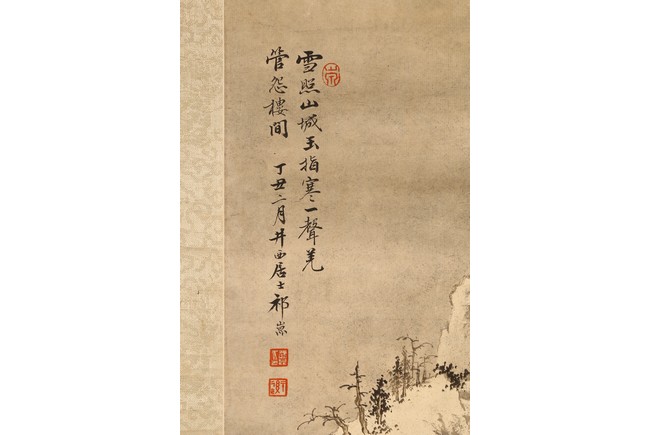 雪照山城玉指寒一聲羌
管怨樓間 丁丑二月井西居士祁崇